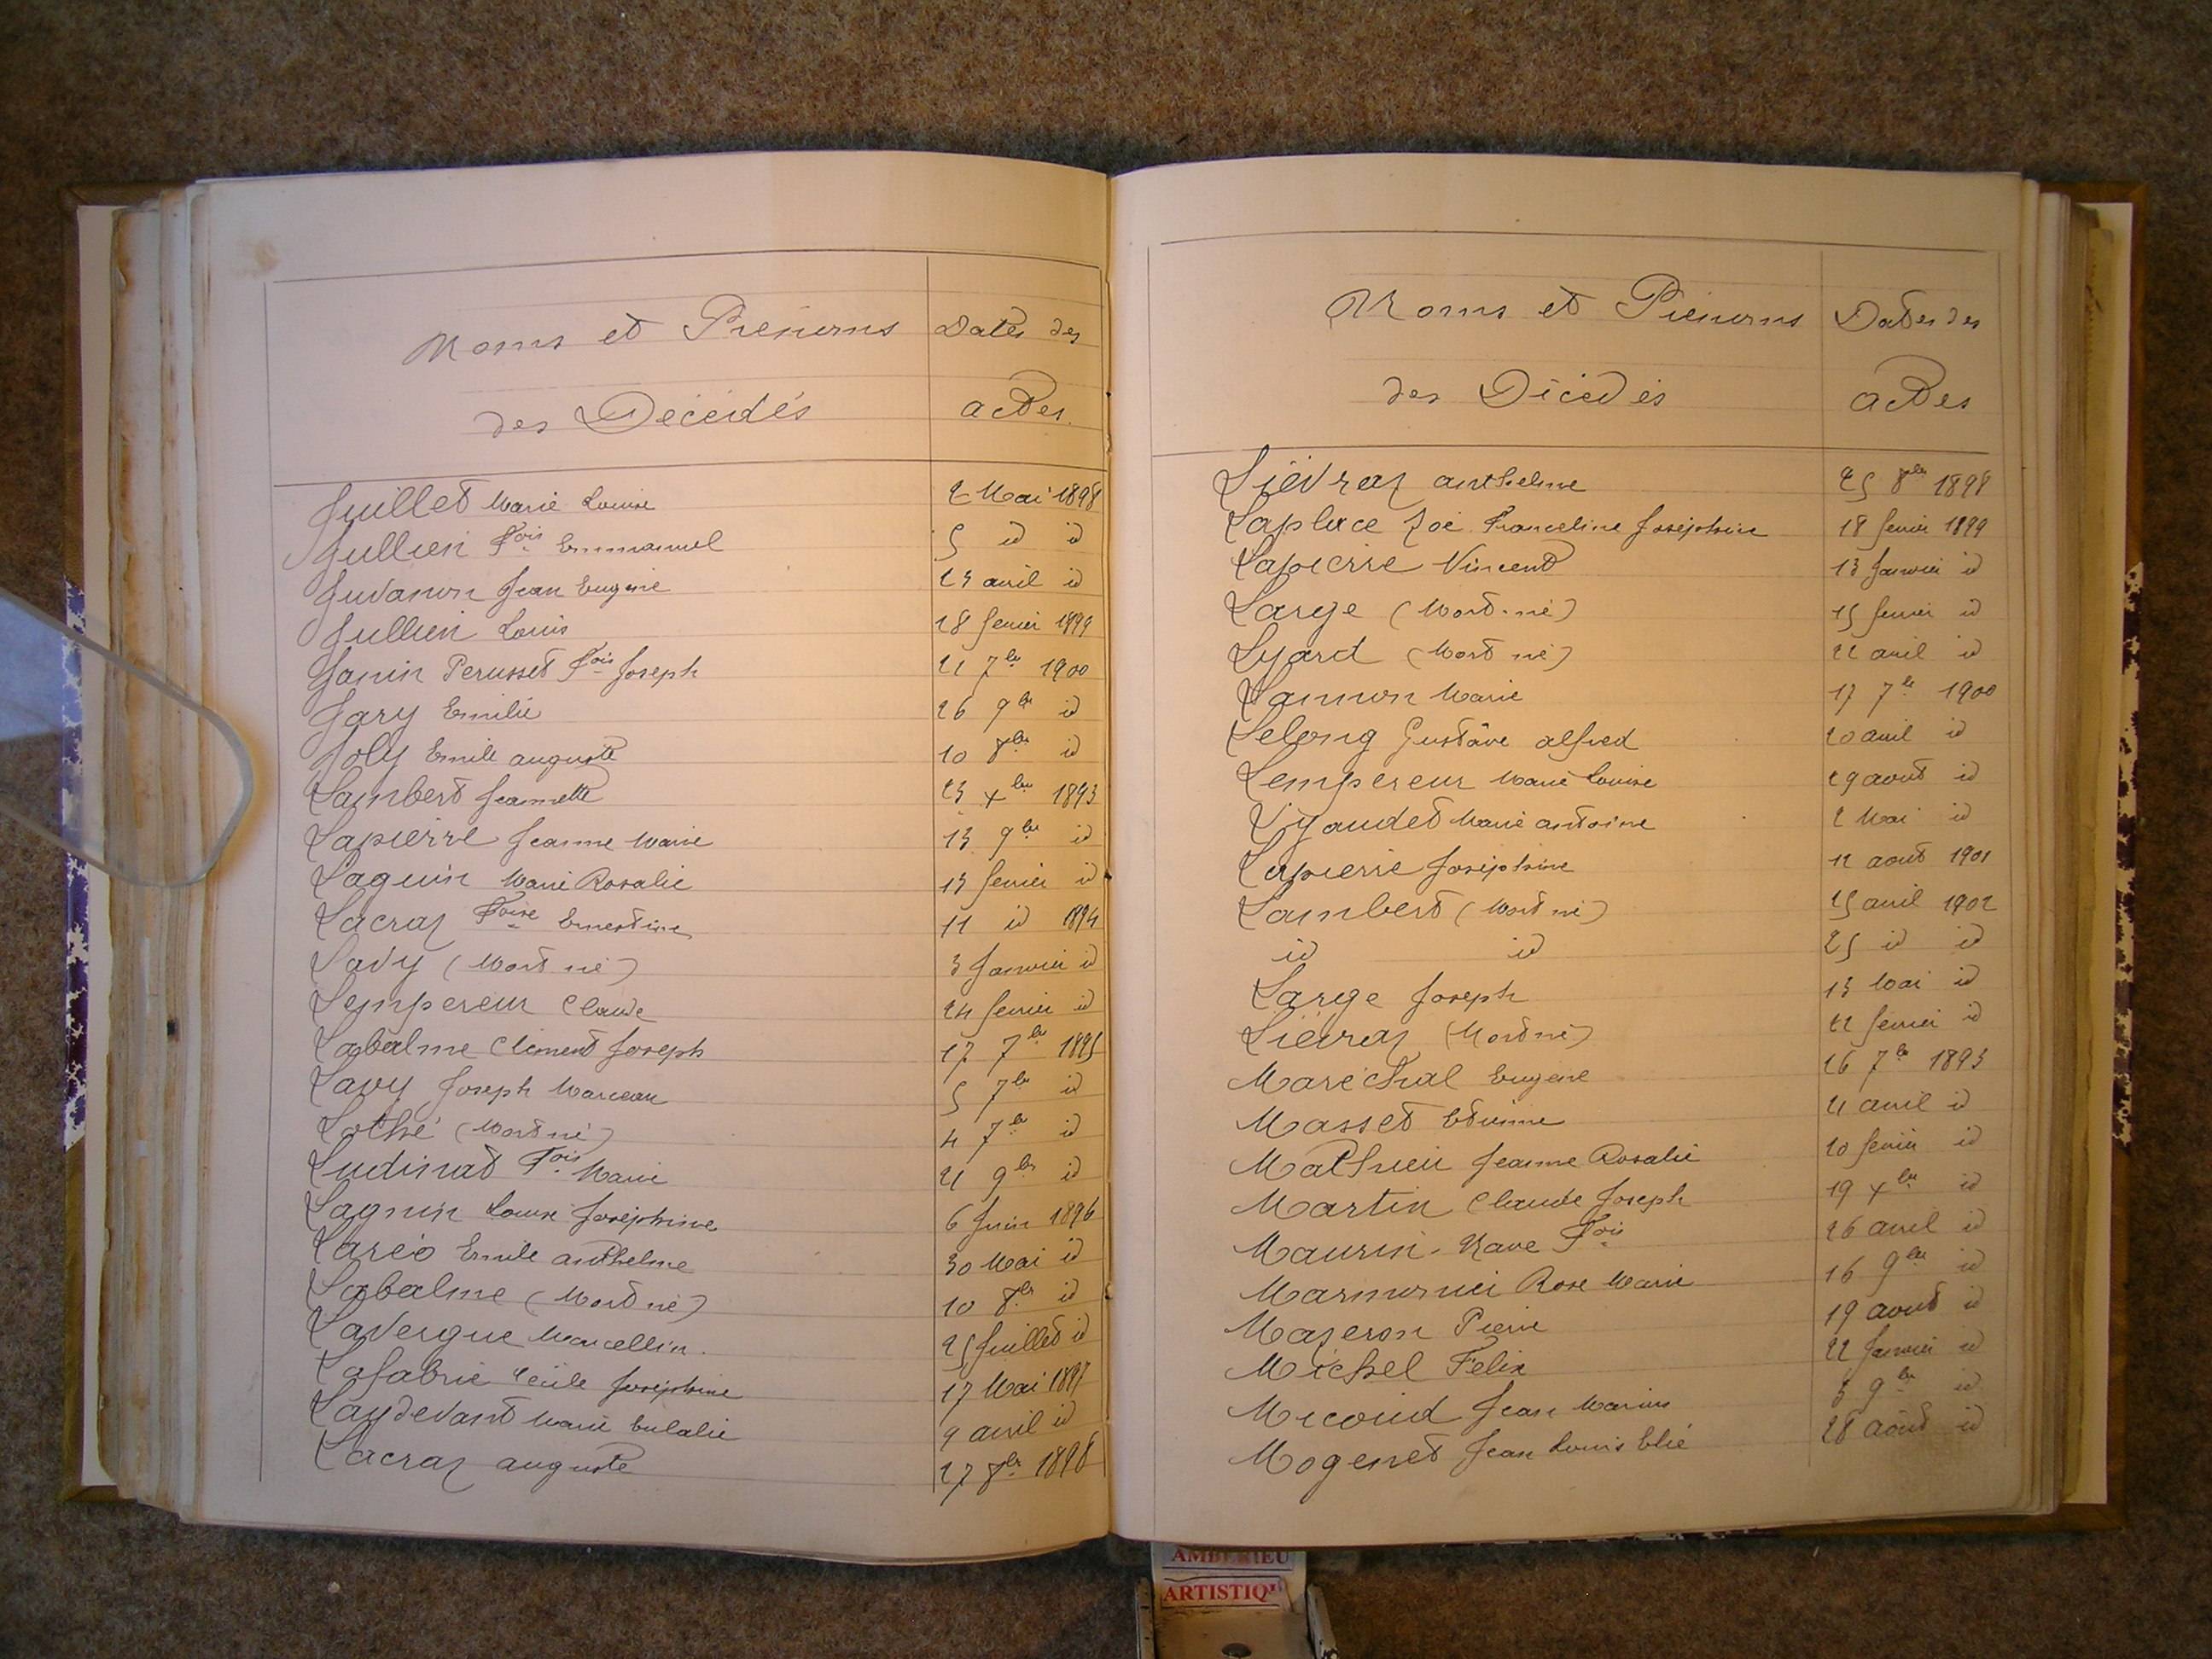 Noms et Prénoms
Dates des
des Décédés
actes.
Juillet Marie Louise 2 Mai 1898
Jullien Fois Emmanuel 5 id id
Juvanon Jean Eugène 23 avril id
Jullien Louis 18 fevrier 1899
Janin Perusset Fois Joseph 21 7bre 1900
Jary Emilie 26 9bre id
Joly Emile auguste 10 8bre id
Lambert Jeannette 23 xbre 1893
Lapierre Jeanne Marie 13 9bre id
Laguin Marie Rosalie 13 fevrier id
Lacraz Foise Ernestine 11 id 1894
Lavy (Mort né) 3 Janvier id
Lempereur Claude 24 fevrier id
Labalme Clément Joseph 17 7bre 1895
Lavy Joseph Marceau 5 7bre id
Lathé (Mort né) 4 7bre id
Ludinat Fois Marie 21 9bre id
Lagnin Louise Joséphine 6 Juin 1896
Laréo Emile anthelme 30 Mai id
Labalme (Mort né) 10 8bre id
Lavergne Marcellin. 25 Juillet id
Lafabrie Cécile Joséphine 17 Mai 1897
Laydevant Marie Eulalie 9 avril id
Lacraz auguste 27 8bre 1898
Noms et Prénoms
Dates des
des Décédés
actes
Liévraz anthelme 25 8bre 1898
Laplace Zoé Franceline Joséphine 18 fevrier 1899
Lapierre Vincent 13 Janvier id
Large (Mort-né) 15 fevrier id
Lyard (Mort né) 22 avril id
Lannon Marie 17 7bre 1900
Lelong Gustave alfred 20 avril id
Lempereur Marie Louise 29 aout id
Vigaudet Marie antoine 2 Mai id
Lapierre Joséphine 12 aout 1901
Lambert (Mort né) 25 avril 1902
id id 25 id id
Large Joseph 13 Mai id
Liévraz (Mort né) 22 fevrier id
Maréchal Eugène 26 7bre 1893
Masset Etienne 21 avril id
Mathieu Jeanne Rosalie 20 fevrier id
Martin Claude Joseph 19 xbre id
Maurin-Rave Fois 26 avril id
Marmonier Rose Marie 16 9bre id
Mazeron Pierre 19 aout id
Michel Félix 22 Janvier id
Micoud Jean Marius 3 9bre id
Mogenet Jean Louis Elie 28 aout id
AMBERIEU
ARTISTIQ